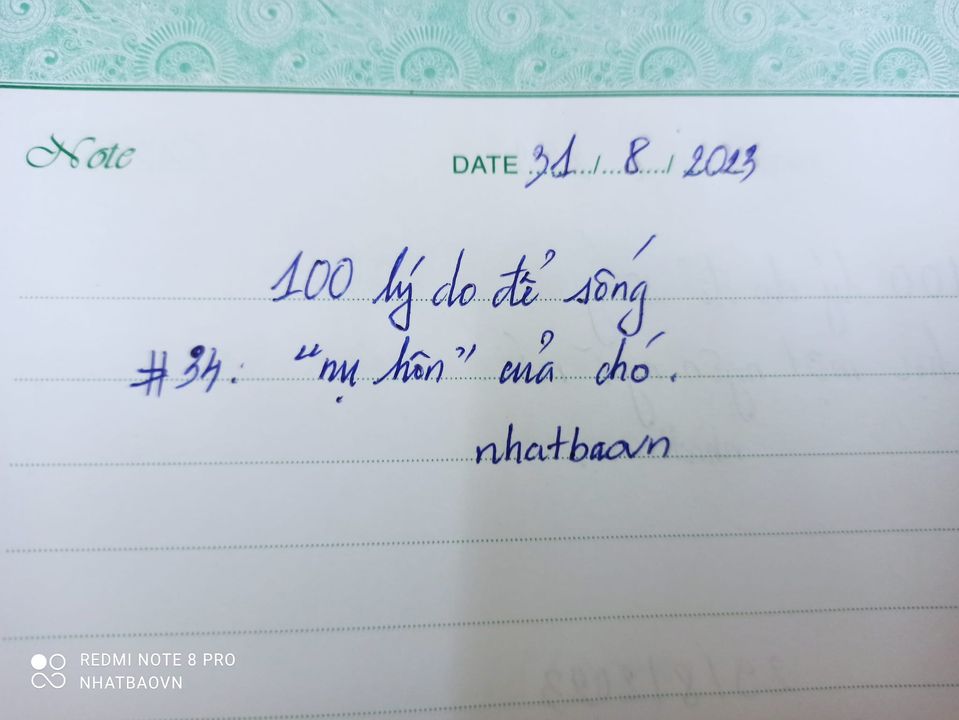 Note
DATE 31/8/2023
100 lý do để sống
#34: "nụ hôn" của chó.
nhatbaovn
REDMI NOTE 8 PRO
NHATBAOVN